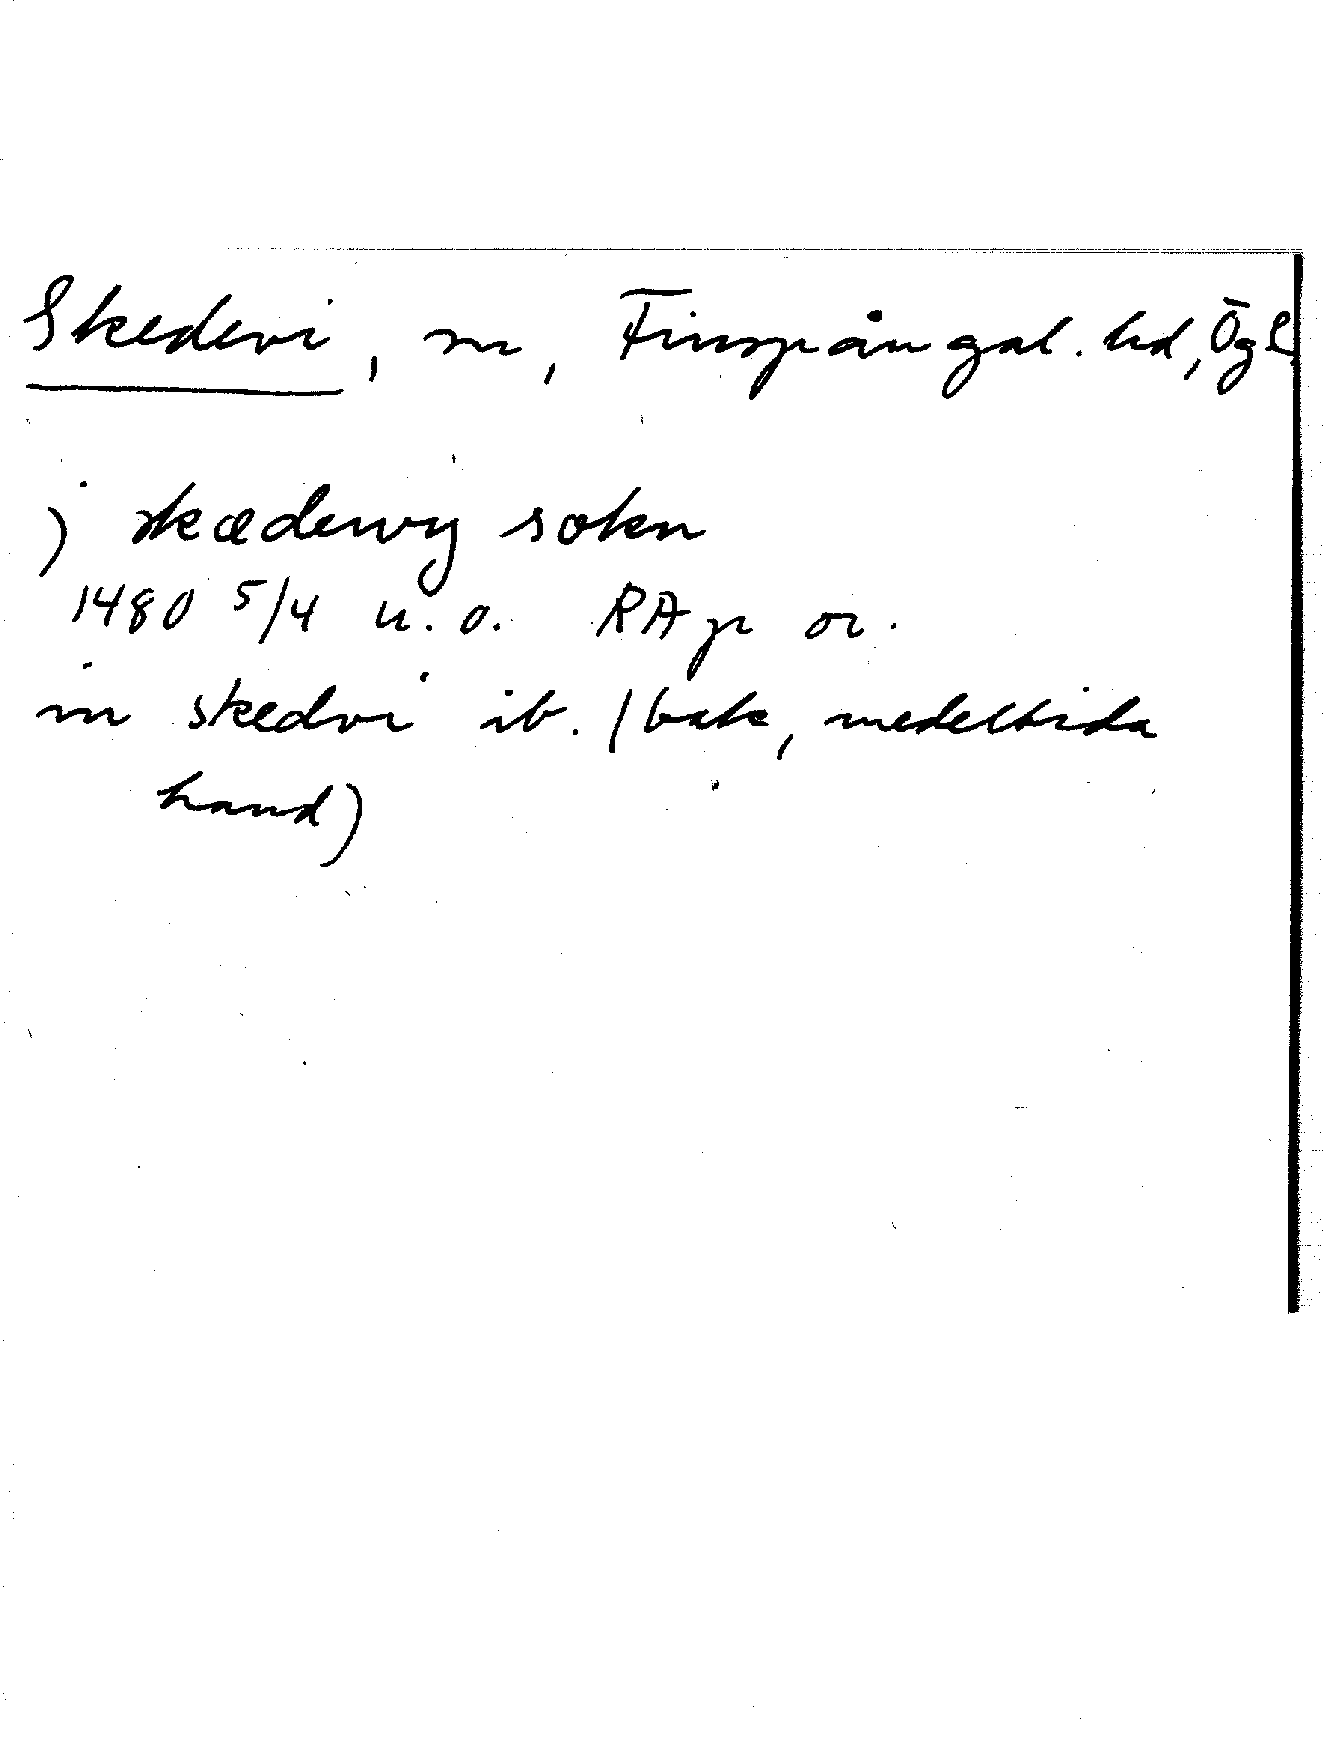 Skedevi, sn, Finspångal. hd, Ögl.
j skædewy sokn
1480 5/4 u.o. RAp or.
in skedvi ib. (bak, medeltida
hand)